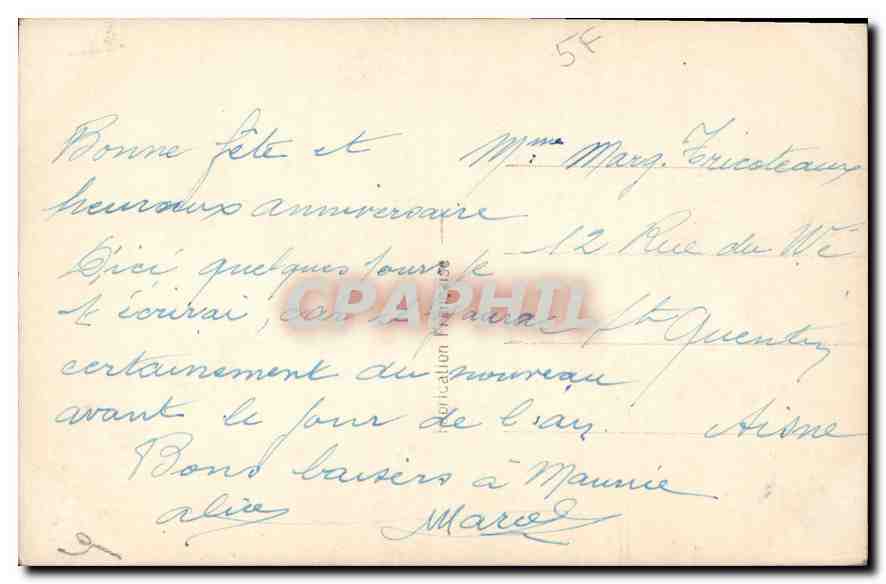 5F
Bonne fête et
heureux anniversaire
D'ici quelques jours je
t'écrirai, car il y aura
certainement du nouveau
avant le jour de l'an.
Bons baisers à Maurice
alice Marcel
Mme Marg. Tricoteaux
12 Rue du Wé
St Quentin
Aisne
Fabrication Française
CPAPHIL